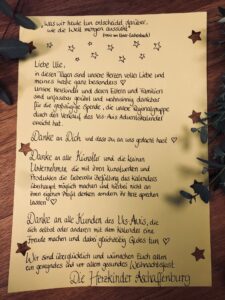 „Was wir heute tun entscheidet darüber,
wie die Welt morgen aussieht."
(Marie von Ebner-Eschenbach)
Liebe Ulle,
in diesen Tagen sind unsere Herzen voller Liebe und
meines heute ganz besonders ♡
Unsere Herzkinder und deren Eltern und Familien
sind unfassbar gerührt und wahnsinnig dankbar
für die großzügige Spende, die unsere Regionalgruppe
durch den Verkauf des Vis Avis Adventskalender
erreicht hat.
Danke an Dich und dass du an uns gedacht hast ♡
Danke an alle Künstler und die kleinen
Unternehmen, die mit ihren kunstwerken und
Produkten die liebevolle Befüllung des Kalenders
überhaupt möglich machen und hierbei nicht an
ihren eigenen Profit denken sondern ihr Herz sprechen
lassen ♡
Danke an alle Kunden des Vis Avis, die
sich selbst oder anderen mit dem Kalender eine
Freude machen und dabei gleichzeitig Gutes tun ♡
Wir sind überglücklich und wünschen Euch allen
ein geregnetes und vor allem gesundes Weihnachtsfest.
Die Herzkinder Aschaffenburg